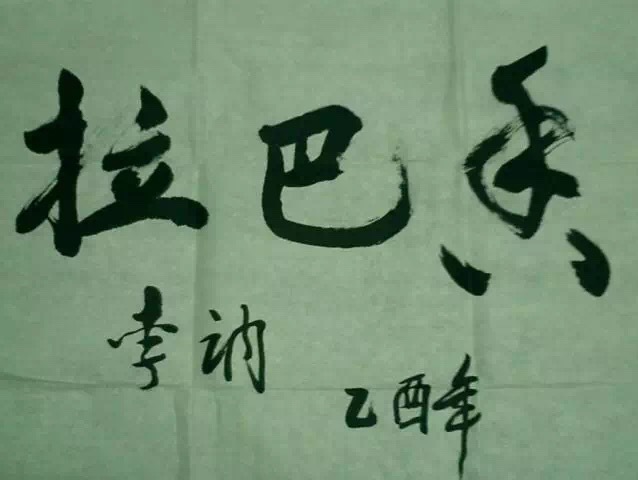 香巴拉
李讷
乙酉年